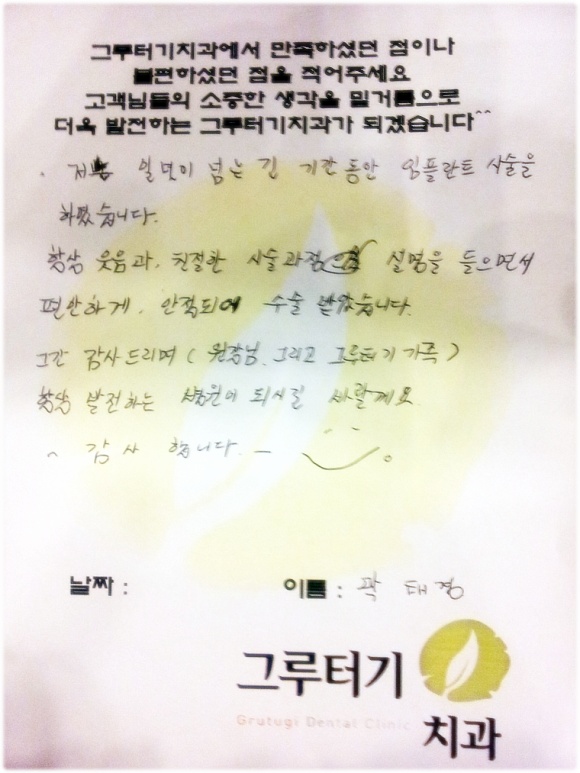 그루터기치과에서 만족하셨던 점이나
불편하셨던 점을 적어주세요
고객님들의 소중한 생각을 밑거름으로
더욱 발전하는 그루터기치과가 되겠습니다^^
일년이 넘는 긴 기간동안 임플란트 시술을
하였습니다.
항상 웃음과, 친절한 시술과정 설명을 들으면서
편안하게, 안정되어 수술 받았습니다.
그간 감사드리며 (원장님, 그리고 그루터기 가족)
항상 발전하는 병원이 되시길 바랄께요.
~ 감사 합니다. -
날짜 : 이름 : 곽태경
그루터기
치과
Grutugi Dental Clinic